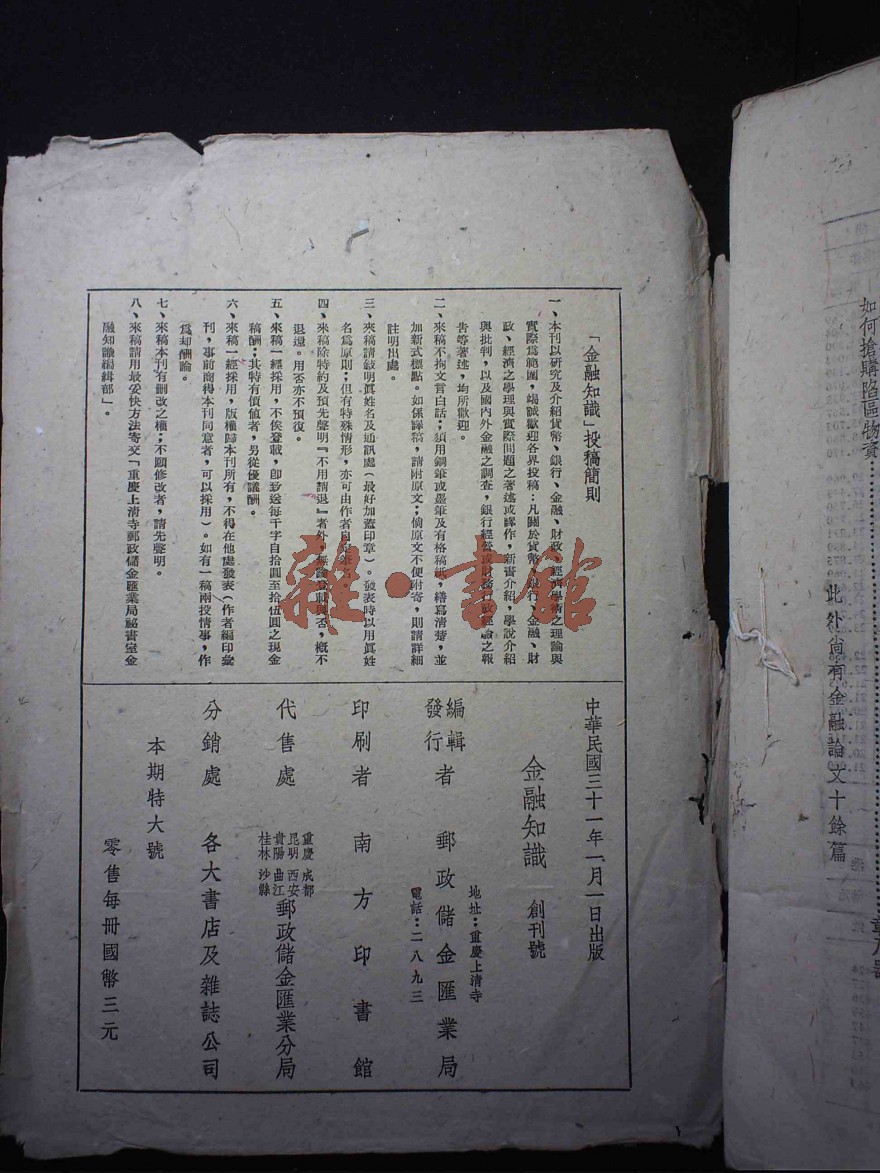 「金融知識」投稿簡則
一、本刊以研究及介紹貨幣、銀行、金融、財政、經濟學術之理論與
實際爲範圍，竭誠歡迎各界投稿：凡關於貨幣、銀行、金融、財
政、經濟之學理與實際問題之著述或譯作，新書介紹，學說介紹
與批判，以及國內外金融之調查，銀行經營及財務行政經驗之報
告等著述，均所歡迎。
二、來稿不拘文言白話；須用鋼筆或墨筆及有格稿紙，繕寫清楚，並
加新式標點。如係譯稿，請附原文；倘原文不便附寄，則請詳細
註明出處。
三、來稿請敍明眞姓名及通訊處（最好加蓋印章）。發表時以用眞姓
名爲原則；但有特殊情形，亦可由作者自定筆名。
四、來稿除特約及預先聲明『不用請退』者外，無論登載與否，概不
退還。用否亦不預復。
五、來稿一經採用，不俟登載，卽致送每千字自拾圓至拾伍圓之現金
稿酬；其特有價値者，另從優議酬。
六、來稿一經採用，版權歸本刊所有，不得在他處發表（作者編印彙
刊，事前商得本刊同意者，可以採用）。如有一稿兩投情事，作
爲却酬論。
七、來稿本刊有刪改之權；不願修改者，請先聲明。
八、來稿請用最妥快方法寄交「重慶上清寺郵政儲金匯業局祕書室金
融知識編緝部」。
中華民國三十一年一月一日出版
金融知識 創刊號
地址：重慶上清寺
編輯發行者 郵政儲金匯業局
電話：二八九三
印刷者 南方印書館
代售處 重慶 成都 昆明 西安 貴陽 曲江 桂林 沙縣 郵政儲金匯業分局
分銷處 各大書店及雜誌公司
本期特大號
零售每冊國幣三元
如何搶購陷區物資
此外尚有金融論文十餘篇
雜·書館